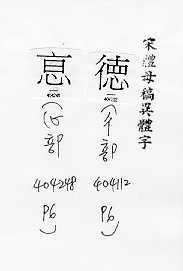 宋體母稿異體字
徳
(彳部
404112
P6)
恴
(心部
404248
P6)